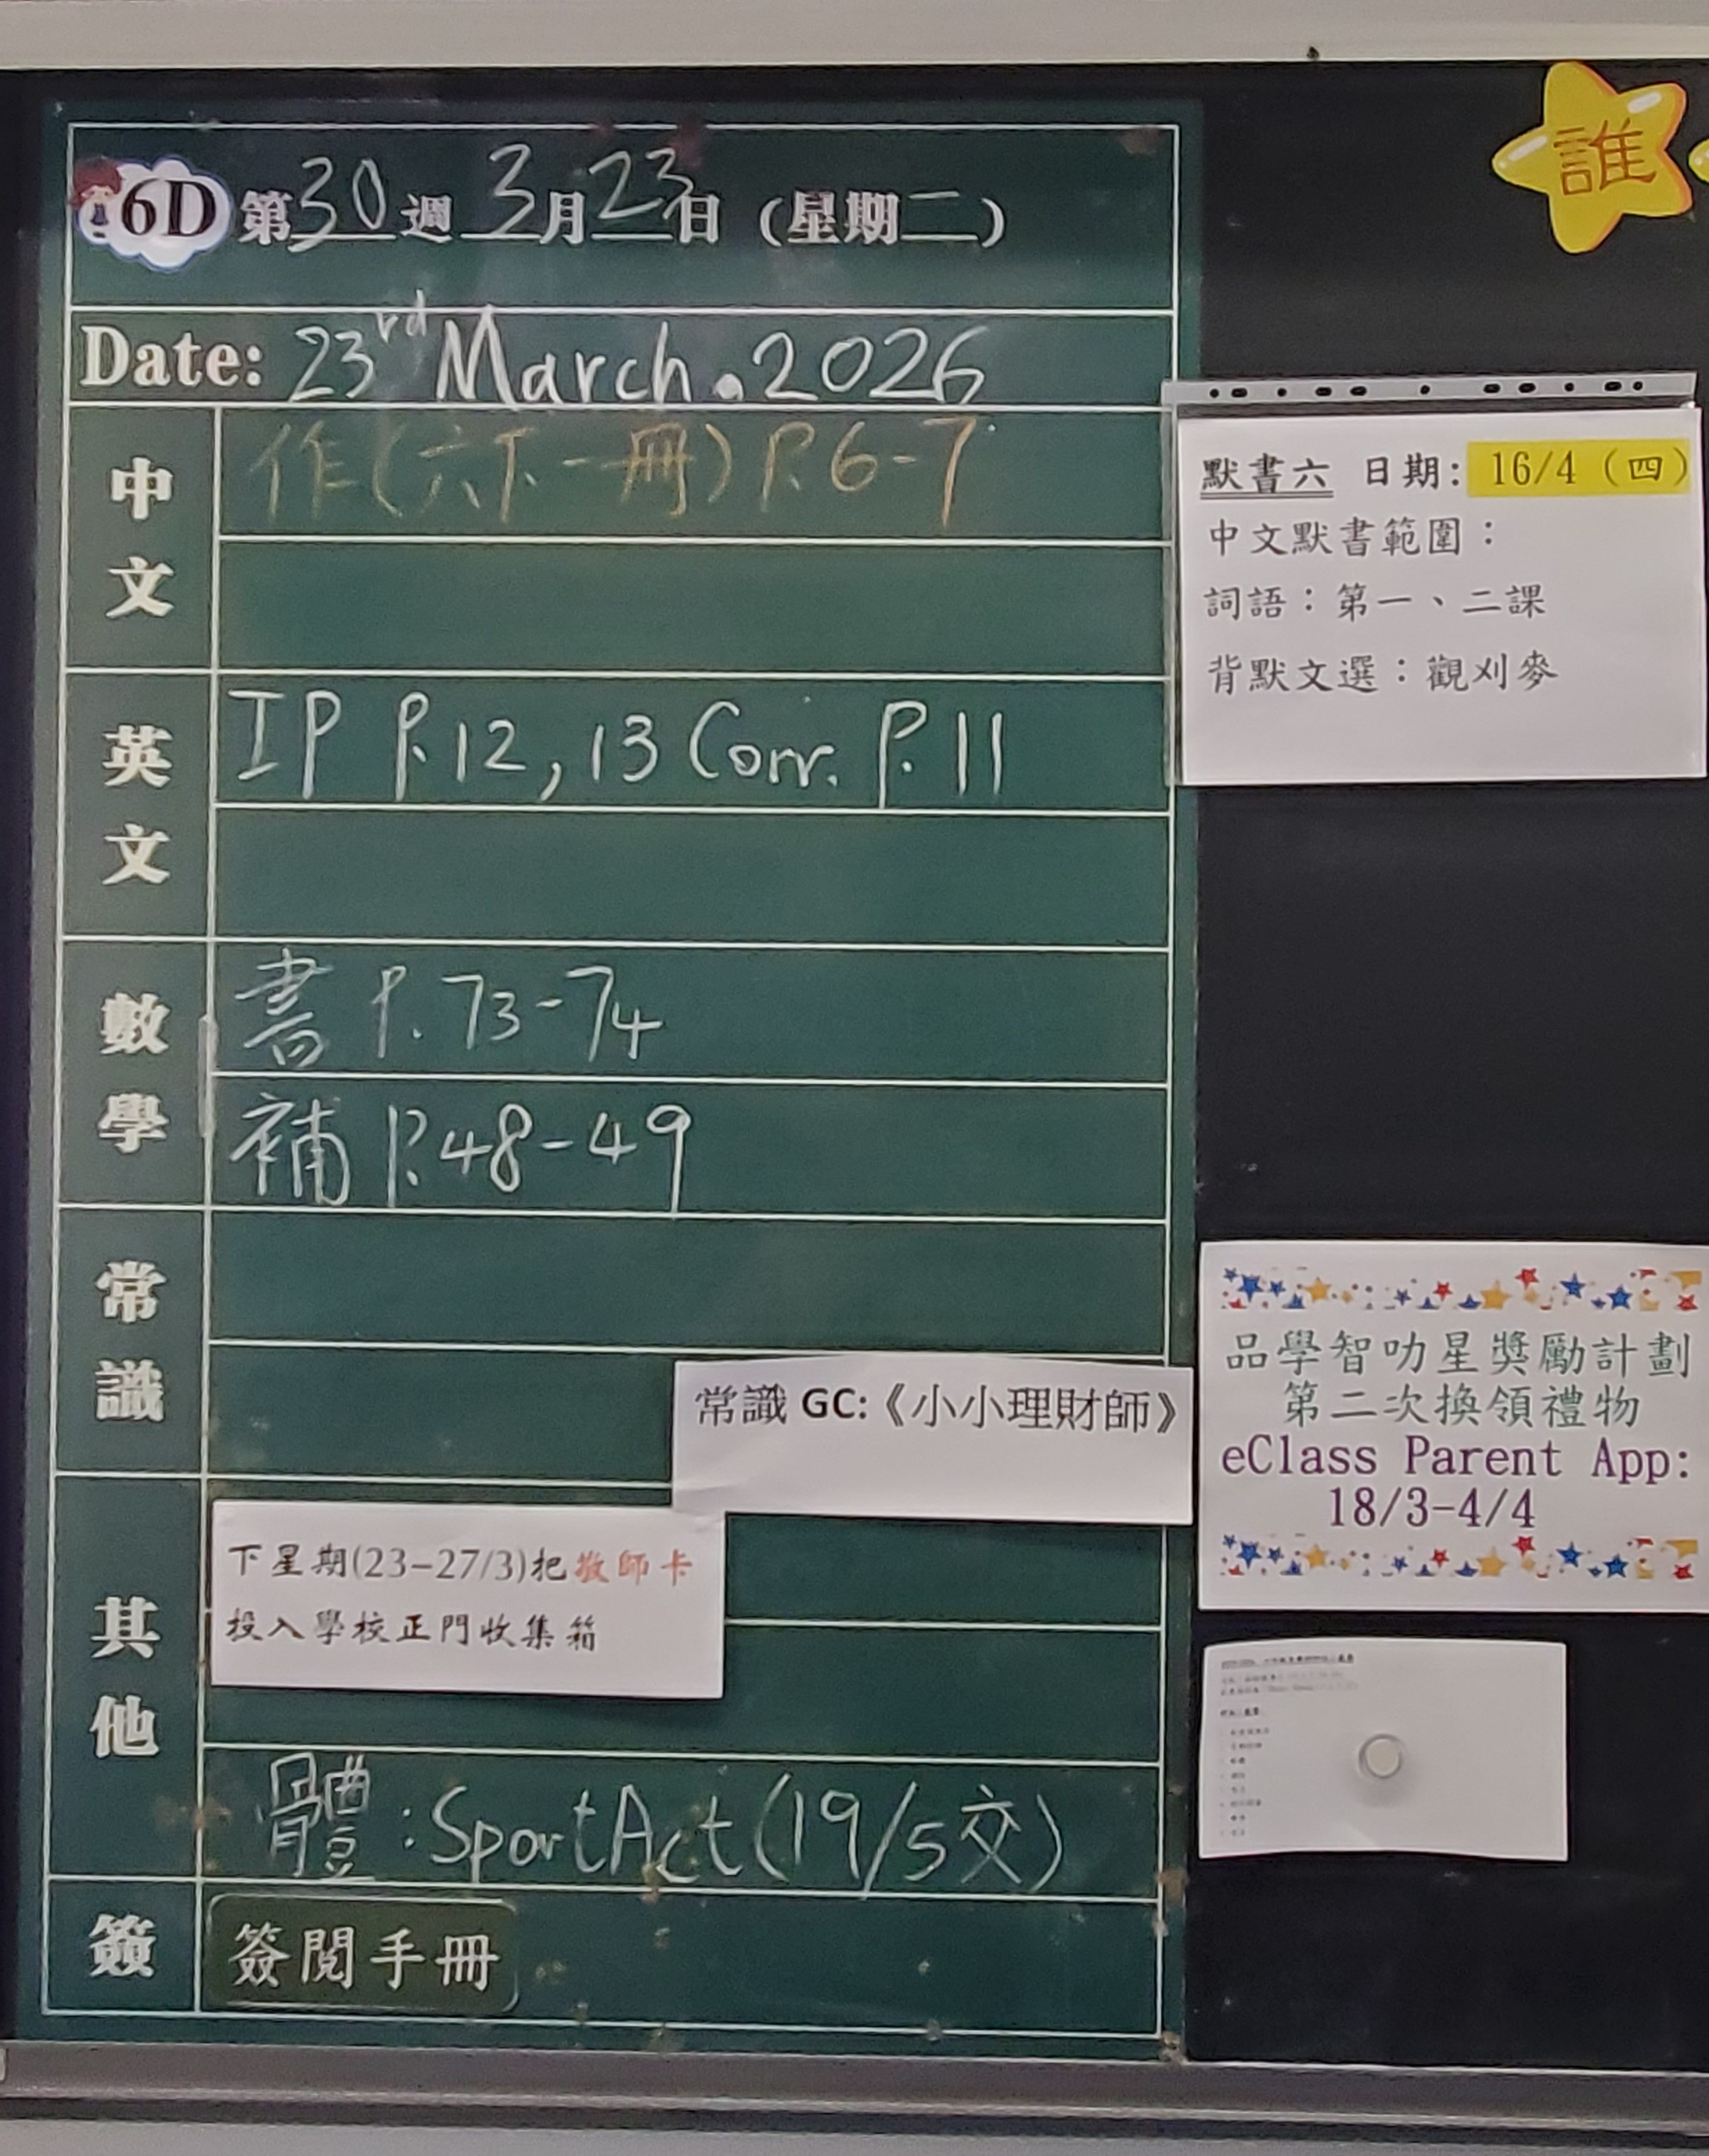 6D 第30週 3月23日 (星期二)
Date: 23rd March.2026
中文
作(六下一冊) P.6-7
英文
IP P.12, 13 Corr. P.11
數學
書 P.73-74
補 P.48-49
常識
常識 GC:《小小理財師》
其他
下星期(23-27/3)把敬師卡
投入學校正門收集箱
體:SportAct(19/5交)
簽
簽閱手冊
誰
默書六 日期: 16/4 (四)
中文默書範圍:
詞語:第一、二課
背默文選:觀刈麥
品學智叻星獎勵計劃
第二次換領禮物
eClass Parent App:
18/3-4/4